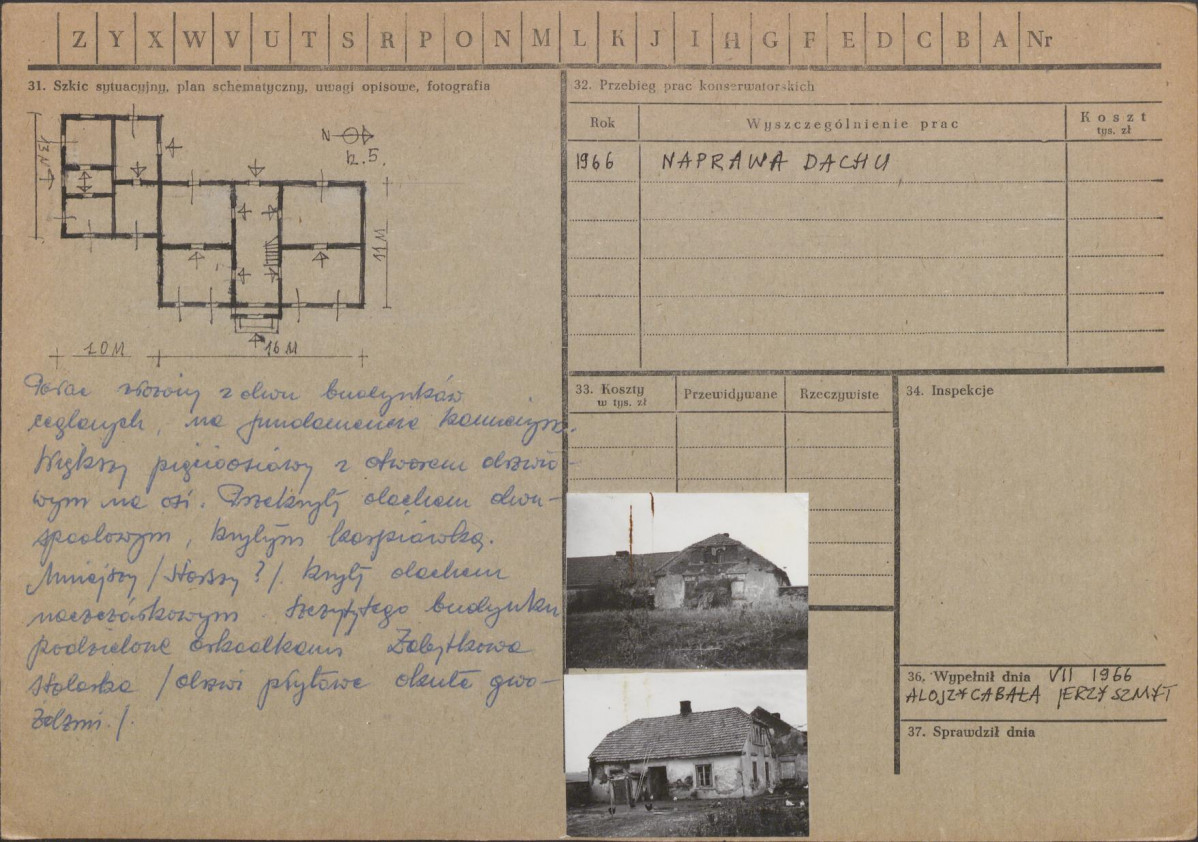 Z Y X W V U T S R P O N M L K J I H G F E D C B A Nr
31. Szkic sytuacyjny, plan schematyczny, uwagi opisowe, fotografia
N
K.5.
13 M
11 M
10 M
16 M
Pałac złożony z dwu budynków
ceglanych, na fundamencie kamiennym.
Większy pięcioosiowy z otworem drzwio-
wym na osi. Przekryty dachem dwu-
spadowym, krytym karpiówką.
Mniejszy /starszy ?/. kryty dachem
naczółkowym szczyty tego budynku
podzielone arkadkami Zabytkowa
stolarka /drzwi płytowe okute gwo-
ździami./
32. Przebieg prac konserwatorskich
Rok
Wyszczególnienie prac
Koszt
tys. zł
1966 NAPRAWA DACHU
33. Koszty
w tys. zł
Przewidywane
Rzeczywiste
34. Inspekcje
36. Wypełnił dnia VII 1966
ALOJZY CABAŁA JERZY SZMYT
37. Sprawdził dnia